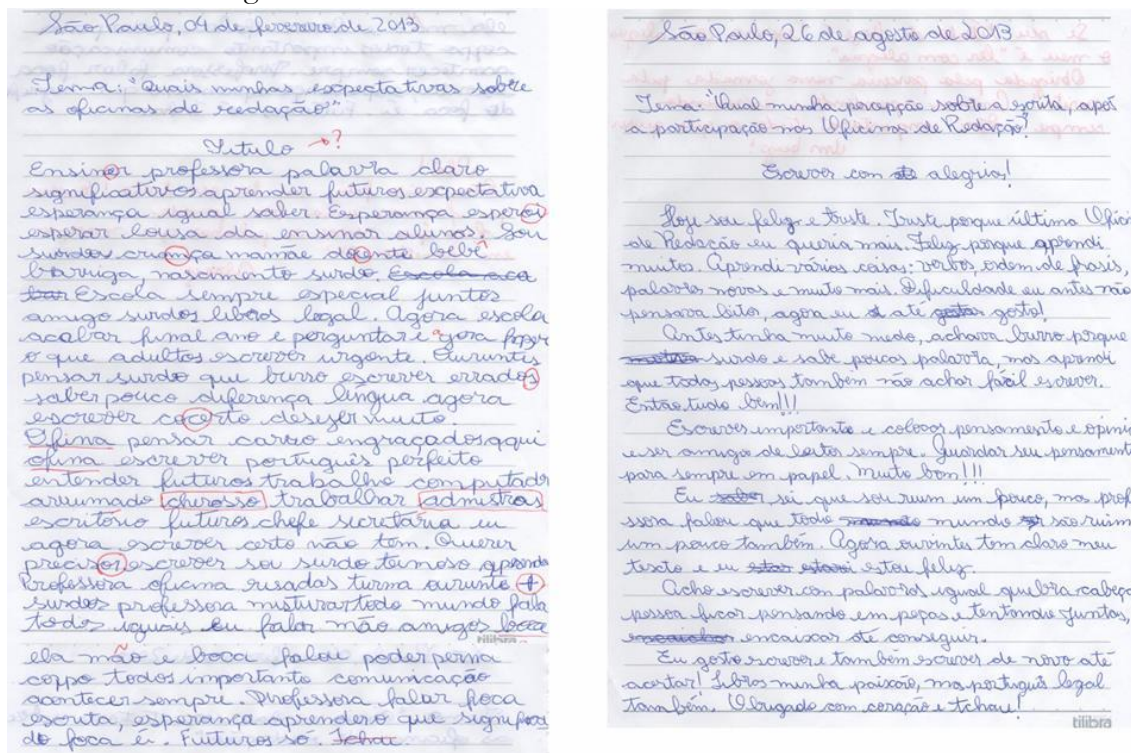 São Paulo, 04 de fevereiro de 2013
Tema: "Quais minhas expectativas sobre
as oficinas de redação?"
Titulo →?
Ensiner professora palavra claro
significativos aprender futuros expectativa
esperança igual saber Esperança esperoi
esperar lousa da ensinar alunos. Sou
surdos criamça mamãe doente bebê
barriga, nascimento surdo. Escola aca
bar Escola sempre especial juntos
amigo surdos libras legal. Agora escola
acabar final ano e perguntar e agora fazer
o que adultos escrever urgente. Ouvintes
pensar surdo que burro escrever errados
saber pouco diferença língua agora
escrever cocerto desejer muito.
Ofina pensar careo engraçados aqui
ofina escrever português perfeito
entender futuros trabalho computador
arrumado cherosso trabalhar admistras
escritorio futuros chefe secretária eu
agora escrever certo não tem. Querer
precisoi escrever sou surdo famoso aprende
Professora oficina risadas turma ouvinte +
surdos professora misturar todo mundo fala
todos iguais eu falar mão amigos boca
ela mão e boca falou poder perna
corpo todos importante comunicação
acontecer sempre. Professora falar foca
escrita, esperança aprender o que signifoca
do foca é. Futuros só. Tchau.
tilibra
São Paulo, 26 de agosto de 2013
Tema: "Qual minha percepção sobre a escrita, após
a participação nas Oficinas de Redação?
Escrever com até alegrias!
Hoje sou feliz e triste. Triste porque última Ofici
de Redação eu queria mais. Feliz porque aprendi
muitos. Aprendi várias coisas: verbos, ordem de frases,
palavras novas e muito mais. Dificuldade eu antes não
pensava, agora eu até gostar gosto!
Antes tinha muito medo, achava burro porque
surdo e sabe poucas palavra, mas aprendi
que todas pessoas também não achar fácil escrever.
Então tudo bem!!!
Escrever importante e colocar pensamento e opini
e ser amigo de leitor sempre. Guardar seu pensament
para sempre em papel. Muito bom!!!
Eu saber sei que sou ruim um pouco, mas prof
ssora falou que todo mundo são ruim
um pouco também. Agora ouvintes tem claro meu
texto e eu estou feliz.
Acho escrever com palavras igual quebra cabeça
pessoa ficar pensando em peças e tentando juntas,
encaixar até conseguir.
Eu gosto escrever e também escrever de novo até
acertar! Libras minha paixão, mas português legal
também. Obrigado com coração e tchau!
tilibra